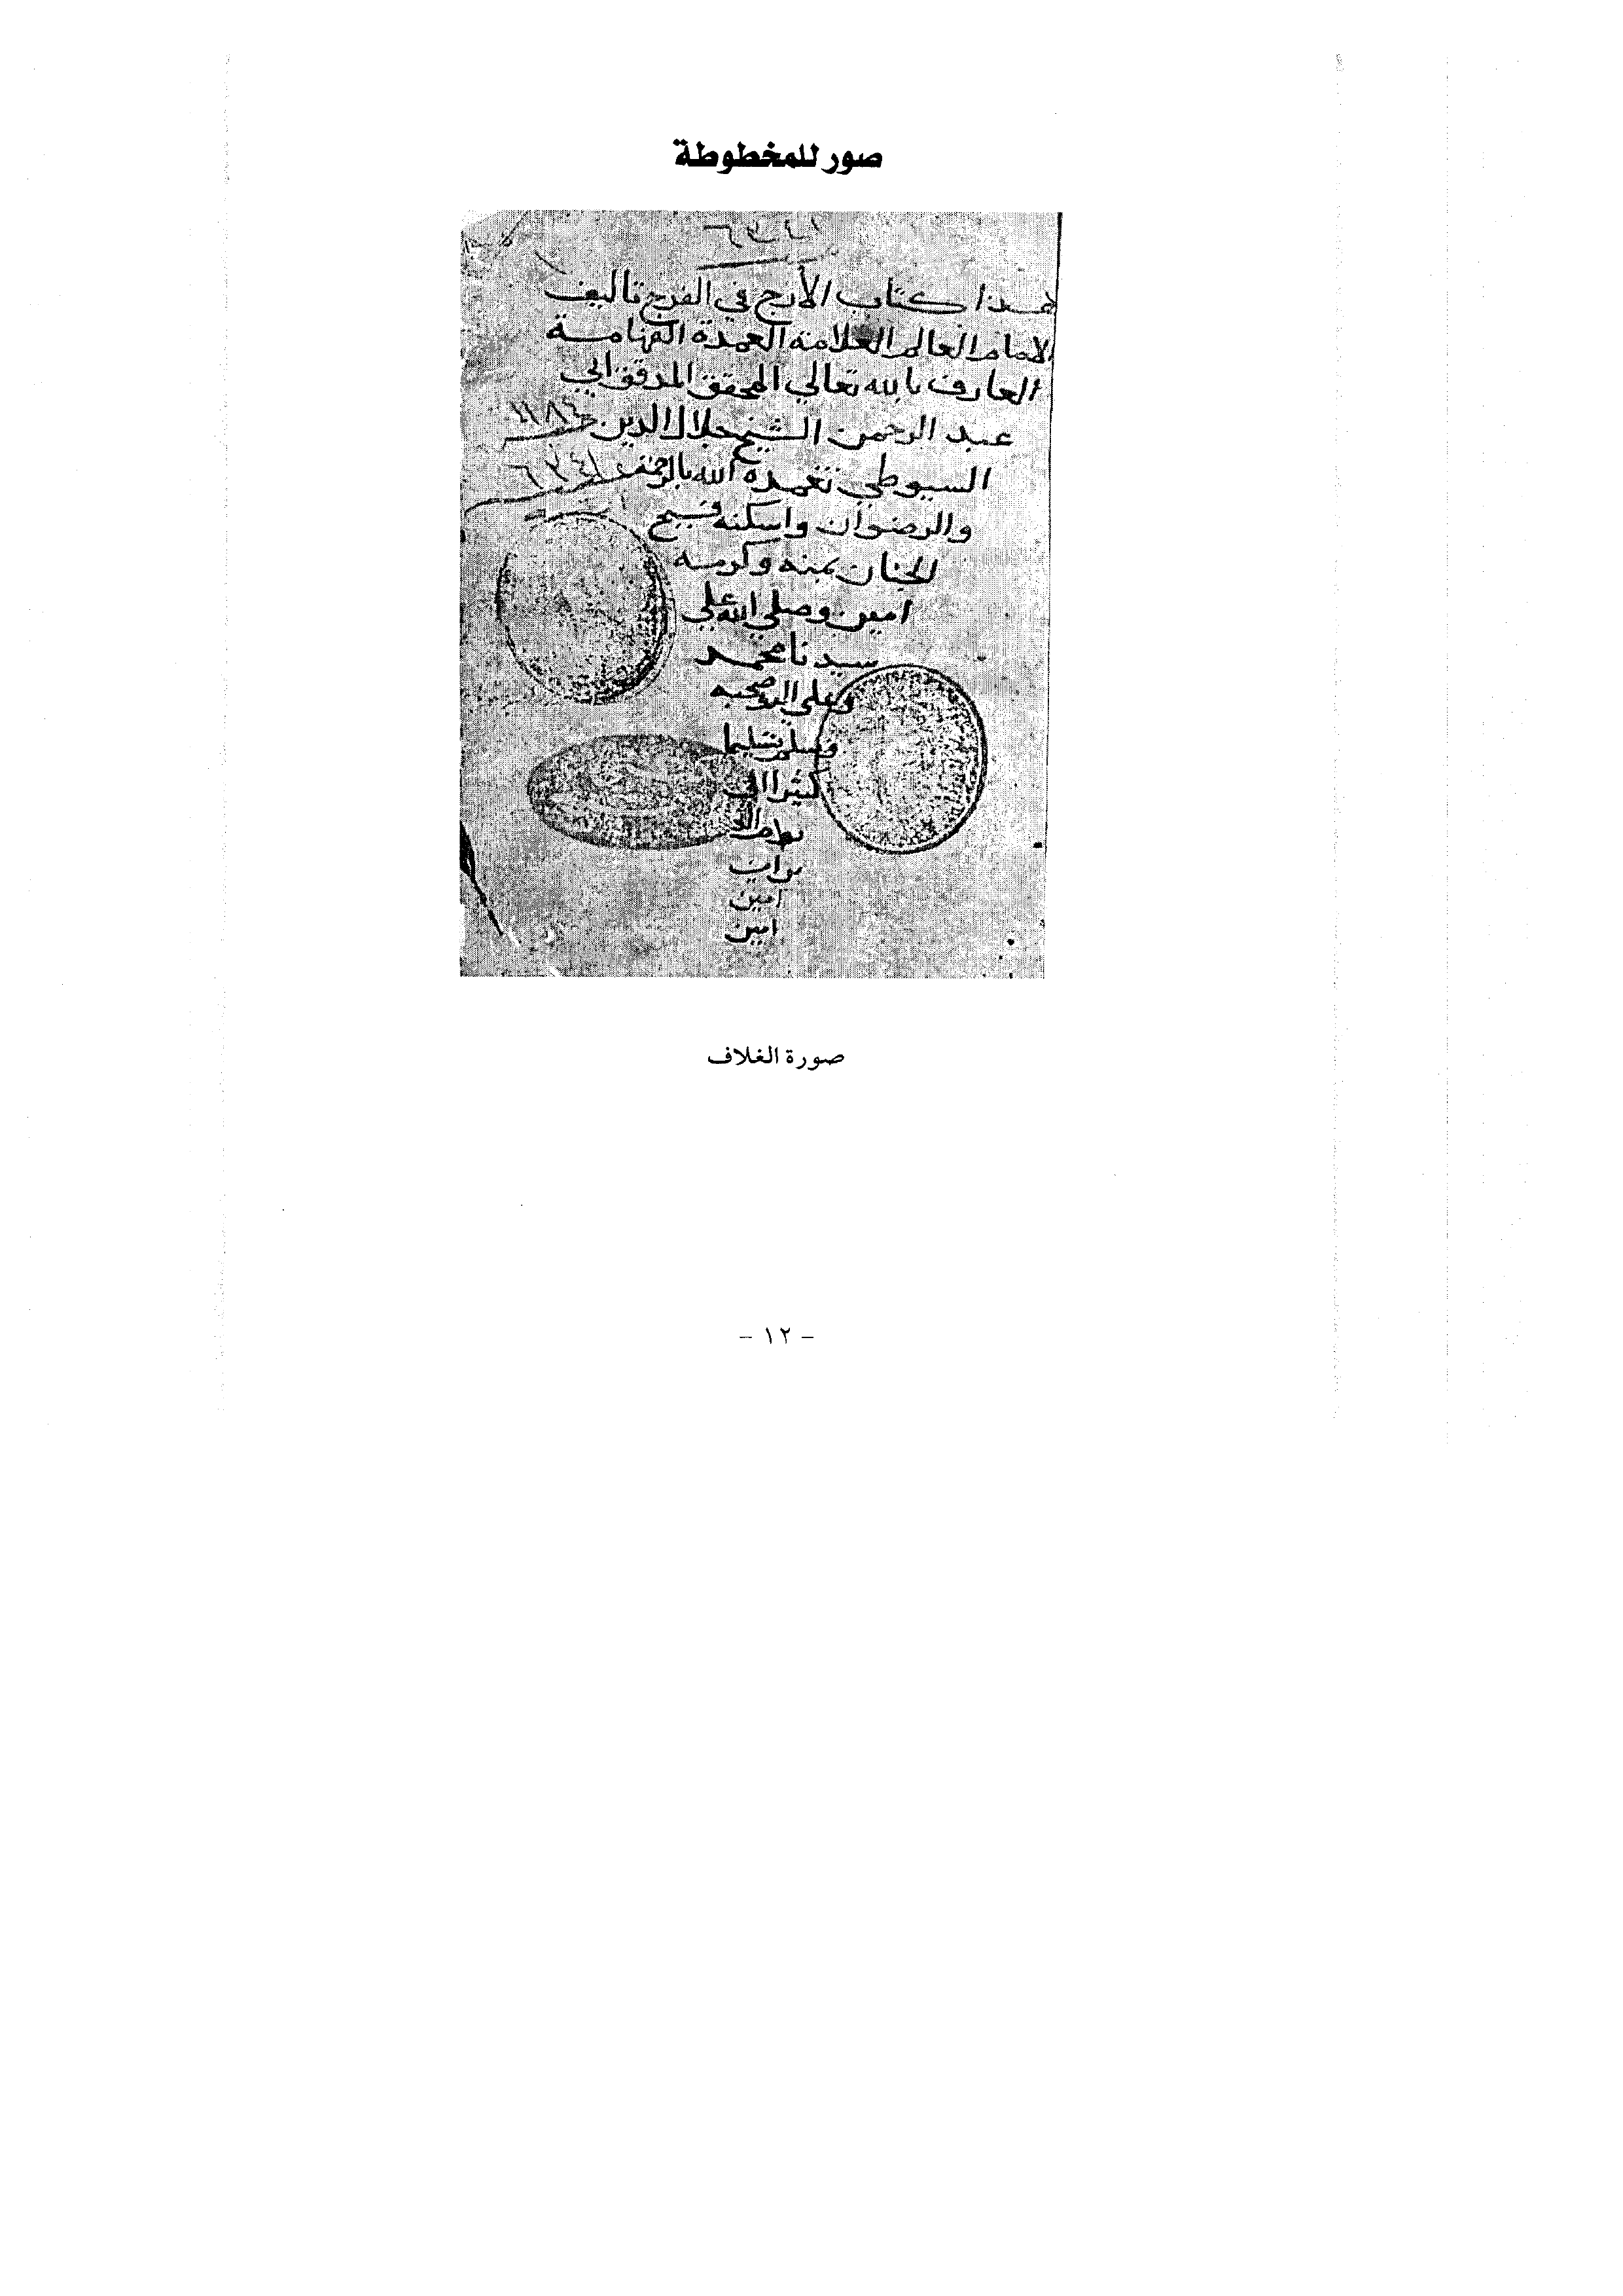 صور للمخطوطة
هذا كتاب الأرج في الفرج تاليف
الامام العالم العلامة العمدة الفهامة
العارف بالله تعالي المحقق المدقق ابي
عبد الرحمن الشيخ جلال الدين
السيوطي تغمده الله بالرحمة
والرضوان واسكنه فسيح
الجنان بمنه وكرمه
امين وصلي الله علي
سيدنا محمد
وعلي اله وصحبه
وسلم تسليما
كثيرا الي
يوم الد
امين
امين
صورة الغلاف
- ١٢ -